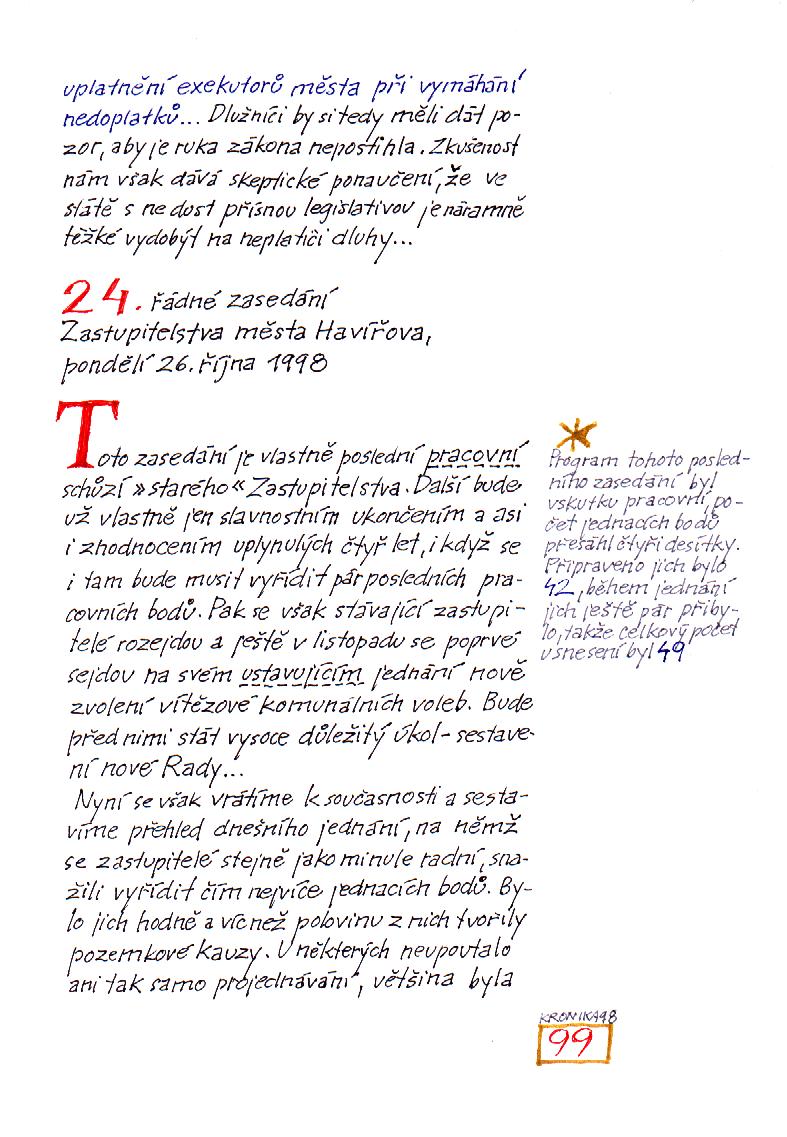 uplatnění exekutorů města při vymáhání
nedoplatků... Dlužníci by si tedy měli dát po-
zor, aby je ruka zákona nepostihla. Zkušenost
nám však dává skeptické ponaučení, že ve
státě s nedost přísnou legislativou je náramně
těžké vydobýt na neplatiči dluhy...
24. řádné zasedání
Zastupitelstva města Havířova,
pondělí 26. října 1998
Toto zasedání je vlastně poslední pracovní
schůzí »starého« Zastupitelstva. Další bude
už vlastně jen slavnostním ukončením a asi
i zhodnocením uplynulých čtyř let, i když se
i tam bude musit vyřídit pár posledních pra-
covních bodů. Pak se však stávající zastupi-
telé rozejdou a ještě v listopadu se poprvé
sejdou na svém ustavujícím jednání nově
zvolení vítězové komunálních voleb. Bude
před nimi stát vysoce důležitý úkol - sestave-
ní nové Rady...
Nyní se však vrátíme k současnosti a sesta-
víme přehled dnešního jednání, na němž
se zastupitelé stejně jako minule radní, sna-
žili vyřídit čím nejvíce jednacích bodů. By-
lo jich hodně a víc než polovinu z nich tvořily
pozemkové kauzy. U některých neupoutalo
ani tak samo projednávání, většina byla
Program tohoto posled-
ního zasedání byl
vskutku pracovní, po-
čet jednacích bodů
přesáhl čtyři desítky.
Připraveno jich bylo
42, během jednání
jich ještě pár přiby-
lo, takže celkový počet
usnesení byl 49
KRONIKA98
99